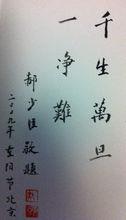 千生萬旦
一净難
郝少臣敬題
二〇〇九年重陽节北京